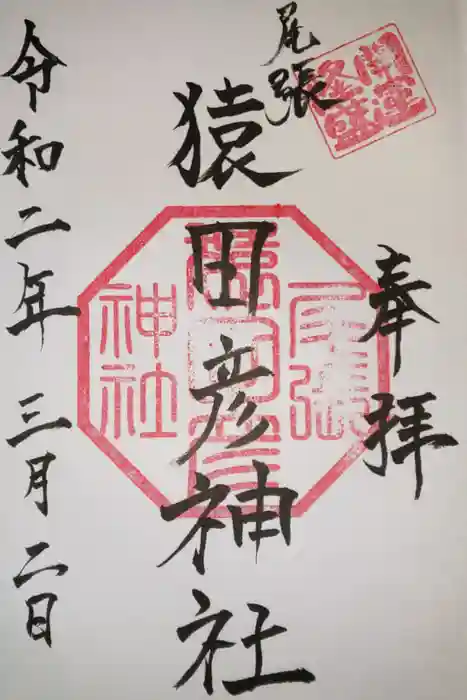 開運
隆盛
奉拝
尾張
猿田彦神社
尾張
猿田彦
神社
令和二年 三月二日